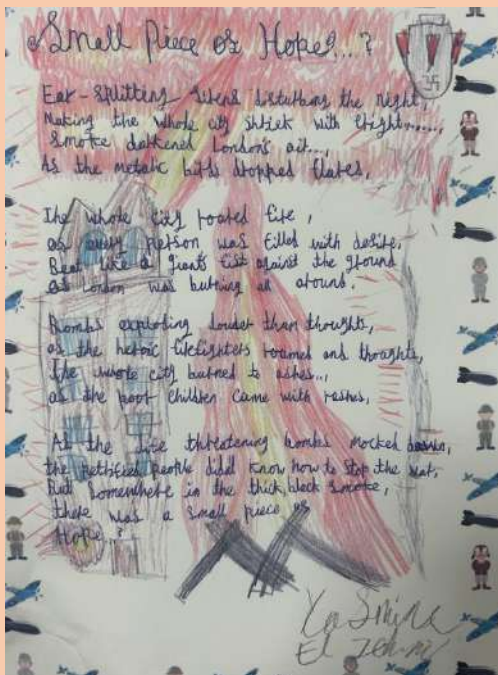 Small Piece of Hope?...?
Ear-splitting sirens disturbing the night,
Making the whole city shriek with fright......,
Smoke darkened London's air...,
As the metalic birds dropped flares,
The whole city roared fire,
as every person was filled with desire,
Beat like a giants fist against the ground
as London was burning all around.
Bombs exploding louder than thoughts,
as the heroic firefighters roamed and thoughts,
The whole city burned to ashes...,
as the poor children came with rashes,
As the life threatening bombs mocked
the petrified people didnt know how to stop the
But Somewhere in the thick, black smoke,
there was a small piece of
Hope?
Yasmine
El